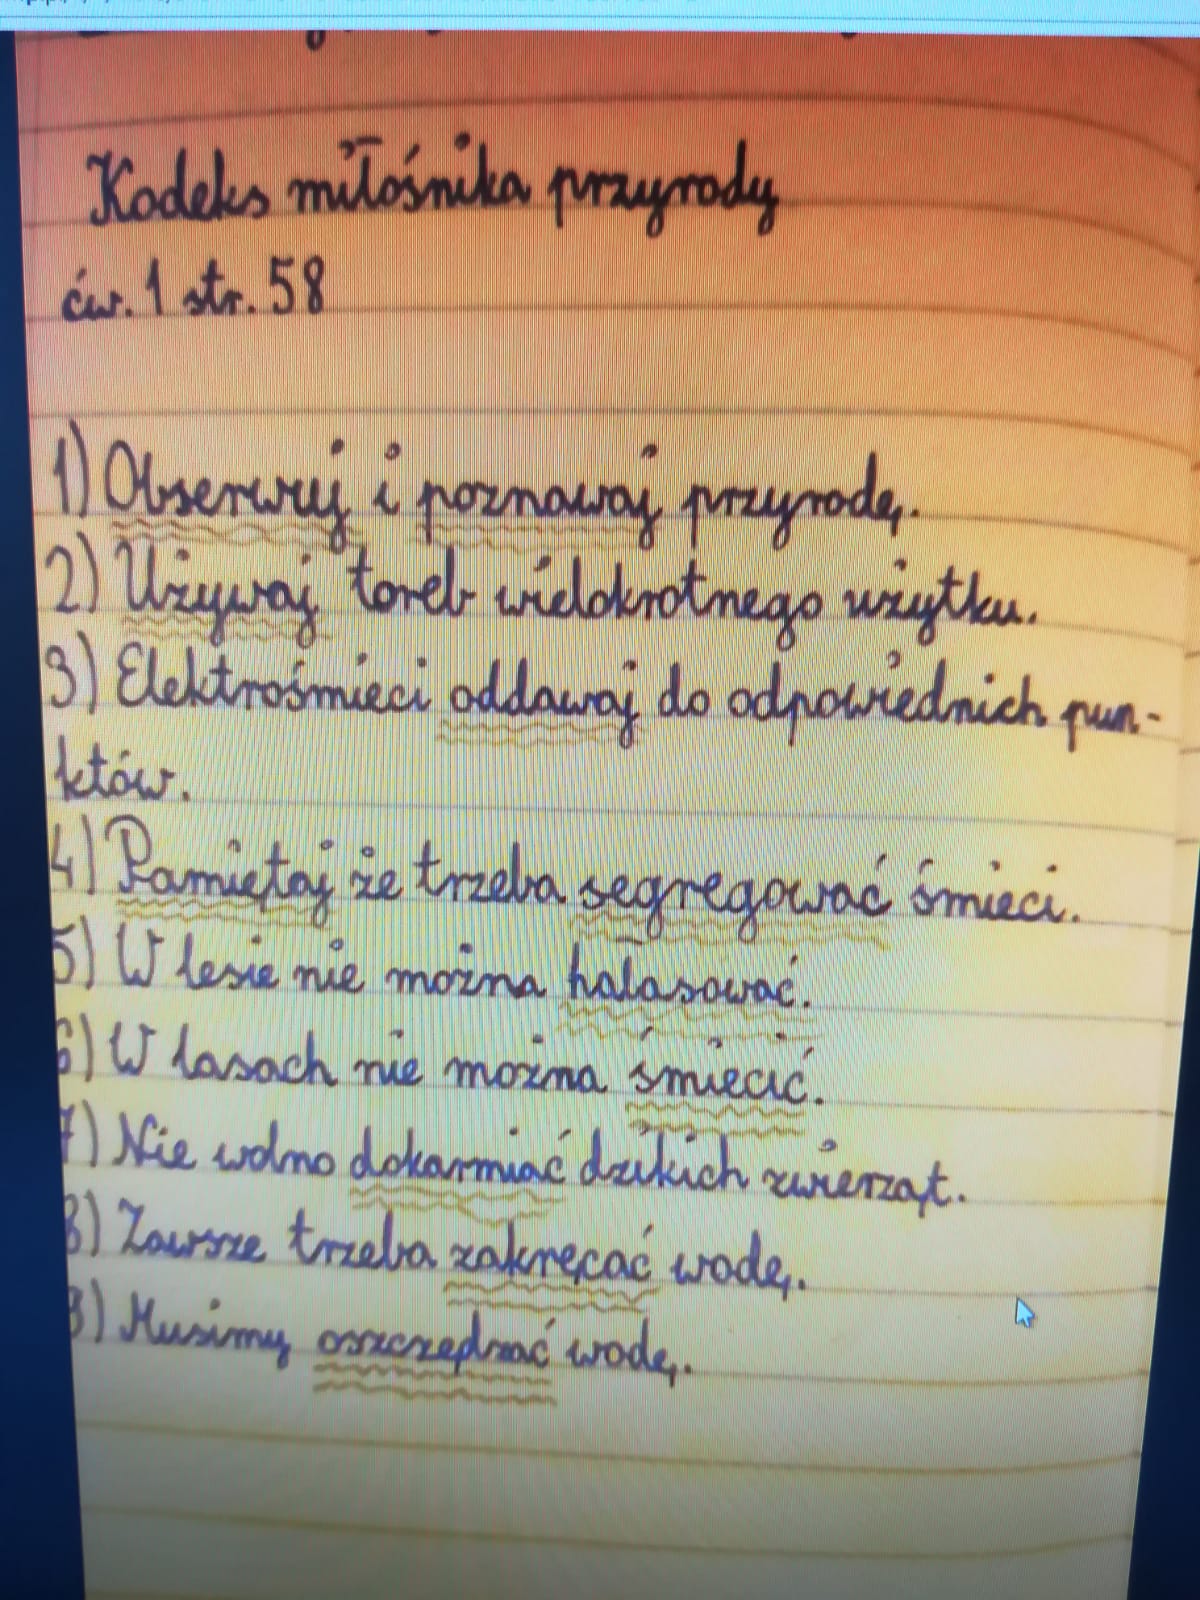 Kodeks miłośnika przyrody
ćw. 1 str. 58
1) Obserwuj i poznawaj przyrodę.
2) Używaj toreb wielokrotnego użytku.
3) Elektrośmieci oddawaj do odpowiednich pun-
któw.
4) Pamiętaj że trzeba segregować śmieci.
5) W lesie nie można hałasować.
6) W lasach nie można śmiecić.
7) Nie wolno dokarmiać dzikich zwierząt.
8) Zawsze trzeba zakręcać wodę.
9) Musimy oszczędzać wodę.